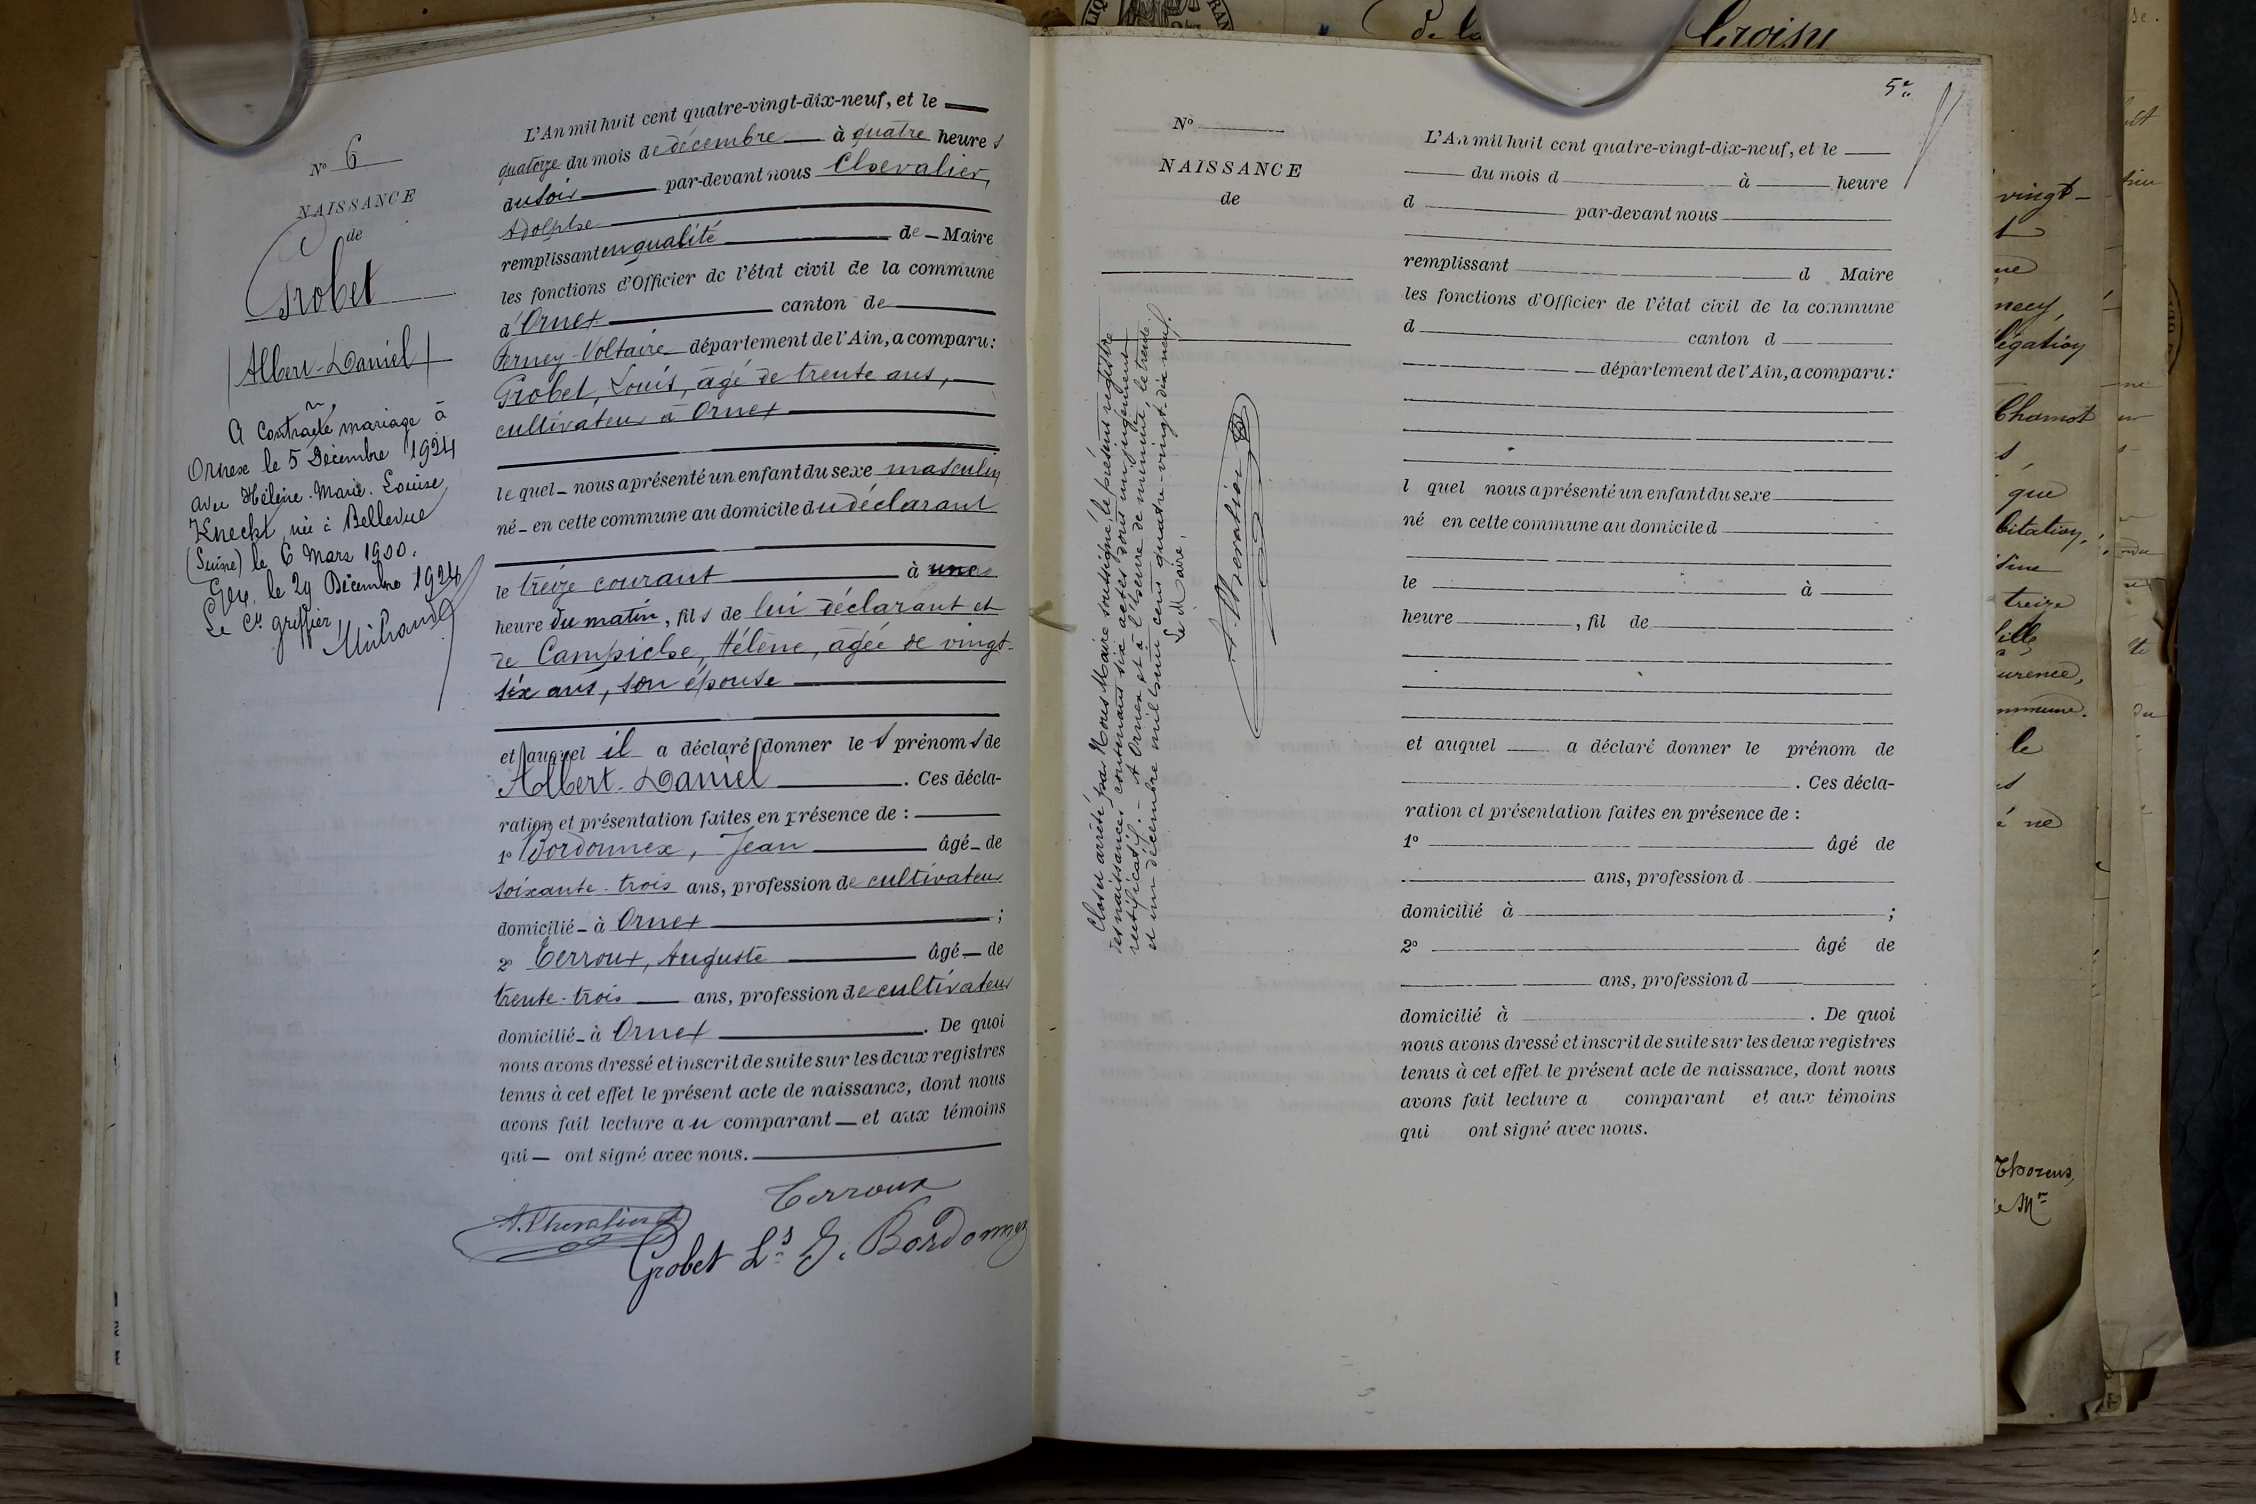 N° 6
NAISSANCE
de
Grobet
Albert-Daniel
A contracté mariage à
Ornex le 5 Décembre 1924
avec Hélène. Marie. Louise
Knecht, née à Bellevue
(Suisse) le 6 Mars 1900.
Gex, le 29 Décembre 1924
Le Cis greffier,
L'An mil huit cent quatre-vingt-dix-neuf, et le
quatorze du mois de décembre à quatre heures
du soir par-devant nous Chevalier,
Adolphe
remplissant en qualité de Maire
les fonctions d'Officier de l'état civil de la commune
d'Ornex canton de
Ferney-Voltaire département de l'Ain, a comparu:
Grobet, Louis, âgé de trente ans,
cultivateur à Ornex
lequel nous a présenté un enfant du sexe masculin
né en cette commune au domicile du déclarant
le treize courant à une
heure du matin, fils de lui déclarant et
de Campiche, Hélène, âgée de vingt-
six ans, son épouse
et auquel il a déclaré donner les prénoms de
Albert-Daniel. Ces décla-
ration et présentation faites en présence de :
1° Bordonnex, Jean âgé de
soixante-trois ans, profession de cultivateur
domicilié à Ornex ;
2° Terroux, Auguste âgé de
trente-trois ans, profession de cultivateur
domicilié à Ornex. De quoi
nous avons dressé et inscrit de suite sur les deux registres
tenus à cet effet le présent acte de naissance, dont nous
avons fait lecture au comparant et aux témoins
qui ont signé avec nous.
Terroux
A. Chevalier
Grobet Ls J. Bordonnex
N°
NAISSANCE
de
Clos et arrêté par Nous Maire soussigné, le présent registre
des naissances contenant six actes dont un jugement
rectificatif. - A Ornex et à l'heure de minuit, le trente
et un décembre mil huit cent quatre-vingt-dix-neuf.
Le Maire,
A. Chevalier
L'An mil huit cent quatre-vingt-dix-neuf, et le
du mois d à heure
d par-devant nous
remplissant d Maire
les fonctions d'Officier de l'état civil de la commune
d canton d
département de l'Ain, a comparu:
l quel nous a présenté un enfant du sexe
né en cette commune au domicile d
le à
heure , fil de
et auquel a déclaré donner le prénom de
. Ces décla-
ration et présentation faites en présence de :
1° âgé de
ans, profession d
domicilié à ;
2° âgé de
ans, profession d
domicilié à . De quoi
nous avons dressé et inscrit de suite sur les deux registres
tenus à cet effet le présent acte de naissance, dont nous
avons fait lecture a comparant et aux témoins
qui ont signé avec nous.
de la Croisu
vingt-
Chamot
que
treize
commune.
le
ne
Thorens,